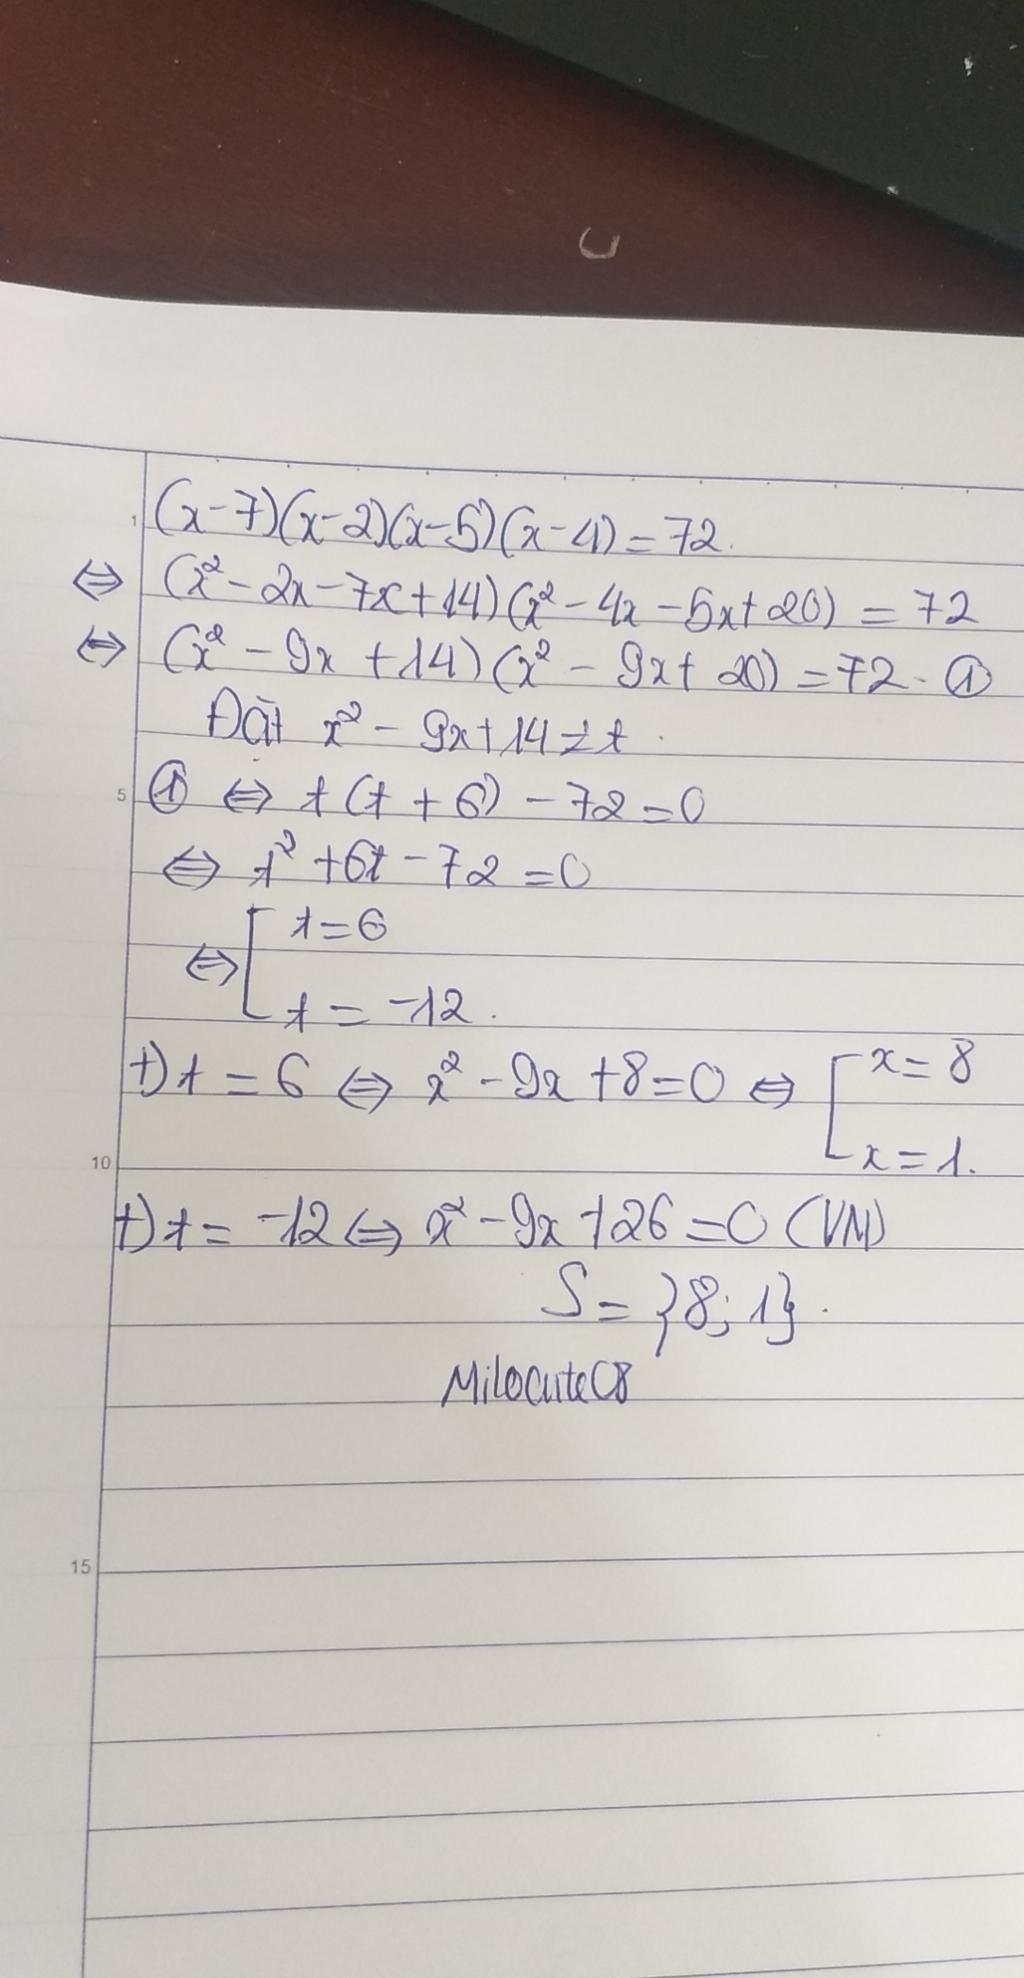 1 (x-7)(x-2)(x-5)(x-4)=72.
⇔ (x²-2x-7x+14)(x²-4x-5x+20)=72
⇔ (x²-9x+14)(x²-9x+20)=72. ①
Đặt x²-9x+14=t.
5 ① ⇔ t(t+6)-72=0
⇔ t²+6t-72=0
⇔ [ t=6
t=-12.
+) t=6 ⇔ x²-9x+8=0 ⇔ [ x=8
10 x=1.
+) t=-12 ⇔ x²-9x+26=0 (VN)
S={8;1}.
MilocuteC8
15